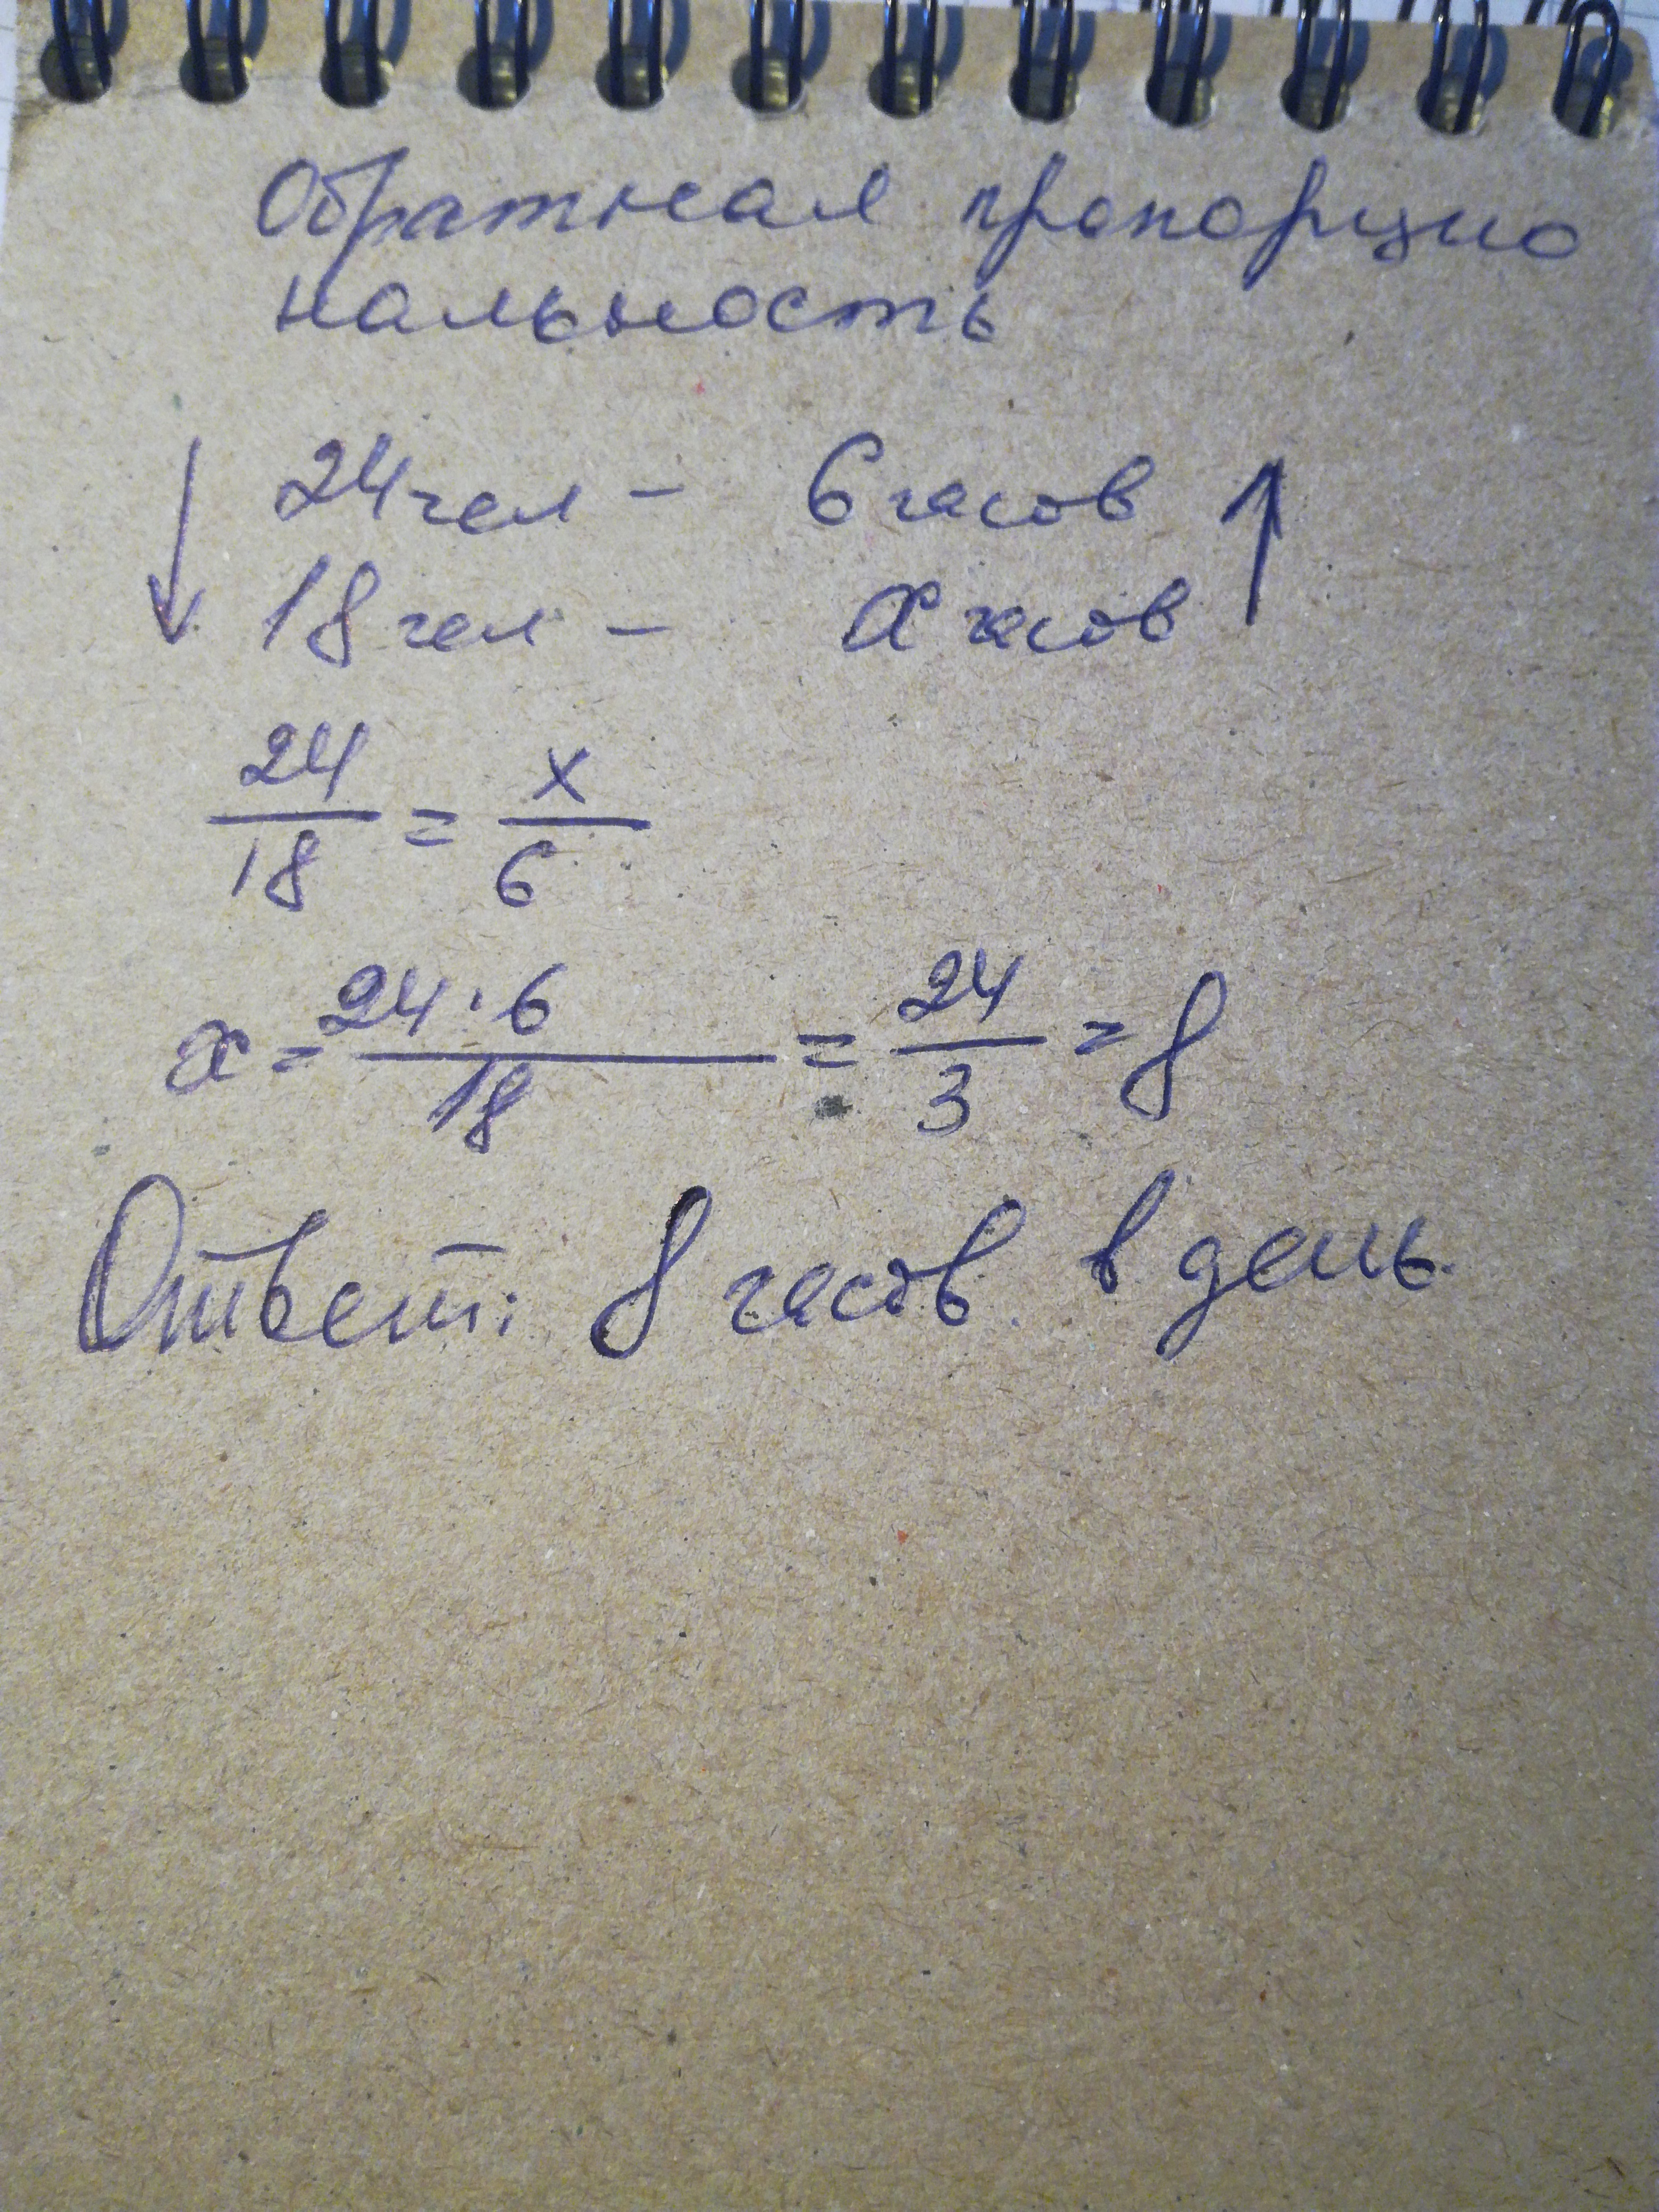 Обратная пропорцио
нальность
24 чел – 6 часов
18 чел – x часов
24/18 = x/6
x = 24·6/18 = 24/3 = 8
Ответ: 8 часов в день.